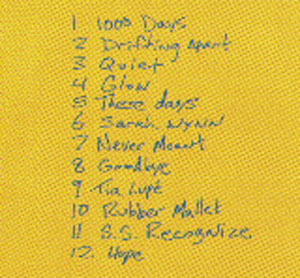 1 1000 Days
2 Drifting Apart
3 Quiet
4 Glow
5 These days
6 Sarah Wynn
7 Never Meant
8 Goodbye
9 Tia Lupé
10 Rubber Mallet
11 S.S. Recognize
12. Hope